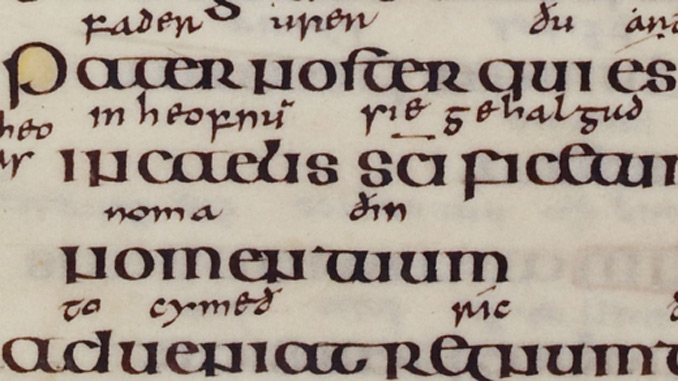 fader urer ðu
Pater noster qui es
heo in heofnū sie gehalgud
in caelis sc̄ificetur
noma ðin
nomen tuum
to cymeð ric
adueniat regnum t